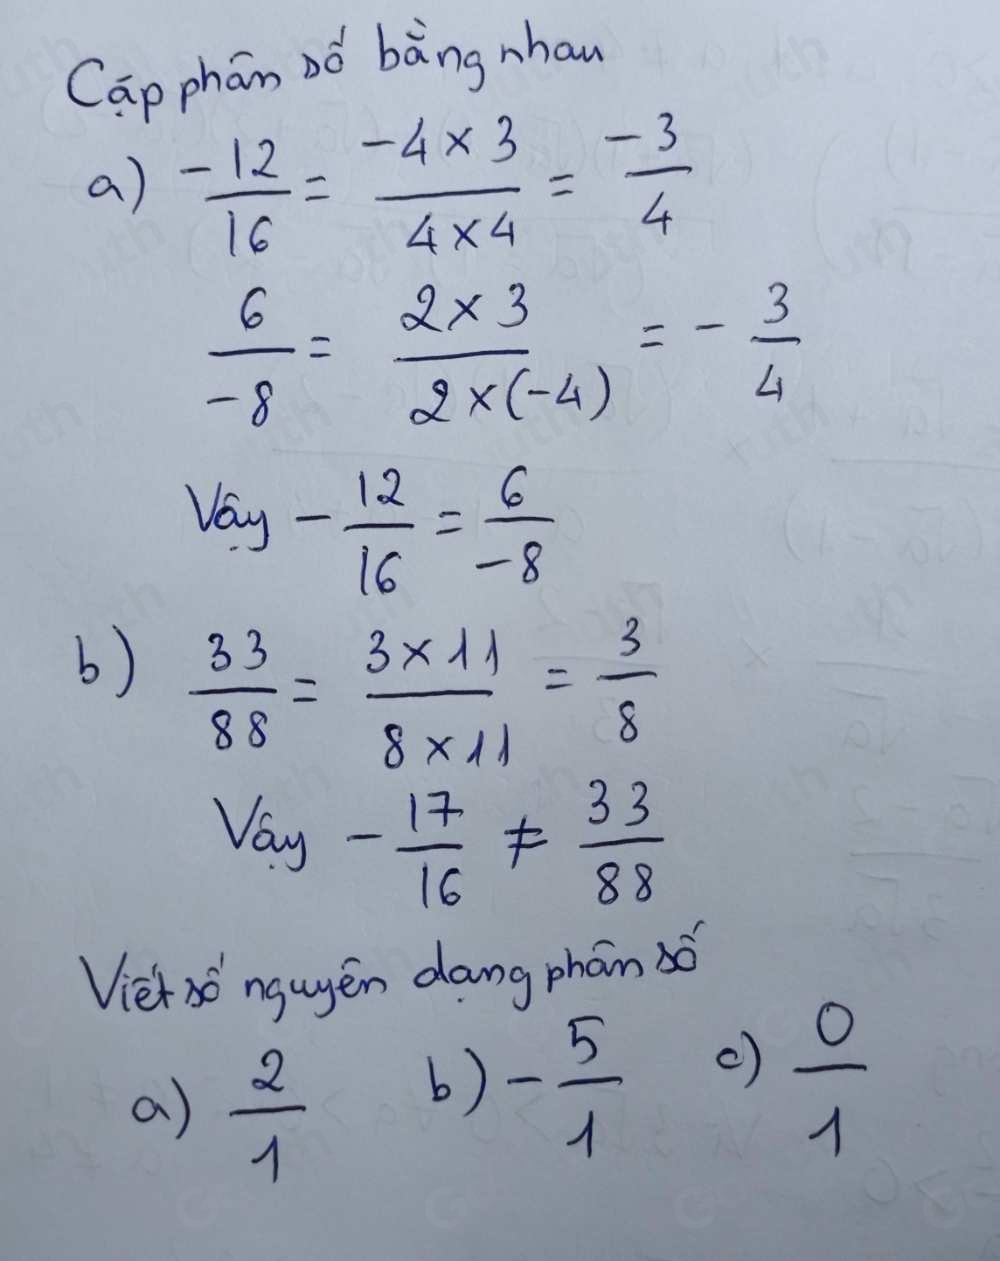 Cặp phân số bằng nhau
a) -12/16 = -4 × 3/4 × 4 = -3/4
6/-8 = 2 × 3/2 × (-4) = - 3/4
Vậy - 12/16 = 6/-8
b) 33/88 = 3 × 11/8 × 11 = 3/8
Vậy - 17/16 ≠ 33/88
Viết số nguyên dạng phân số
a) 2/1 b) - 5/1 c) 0/1